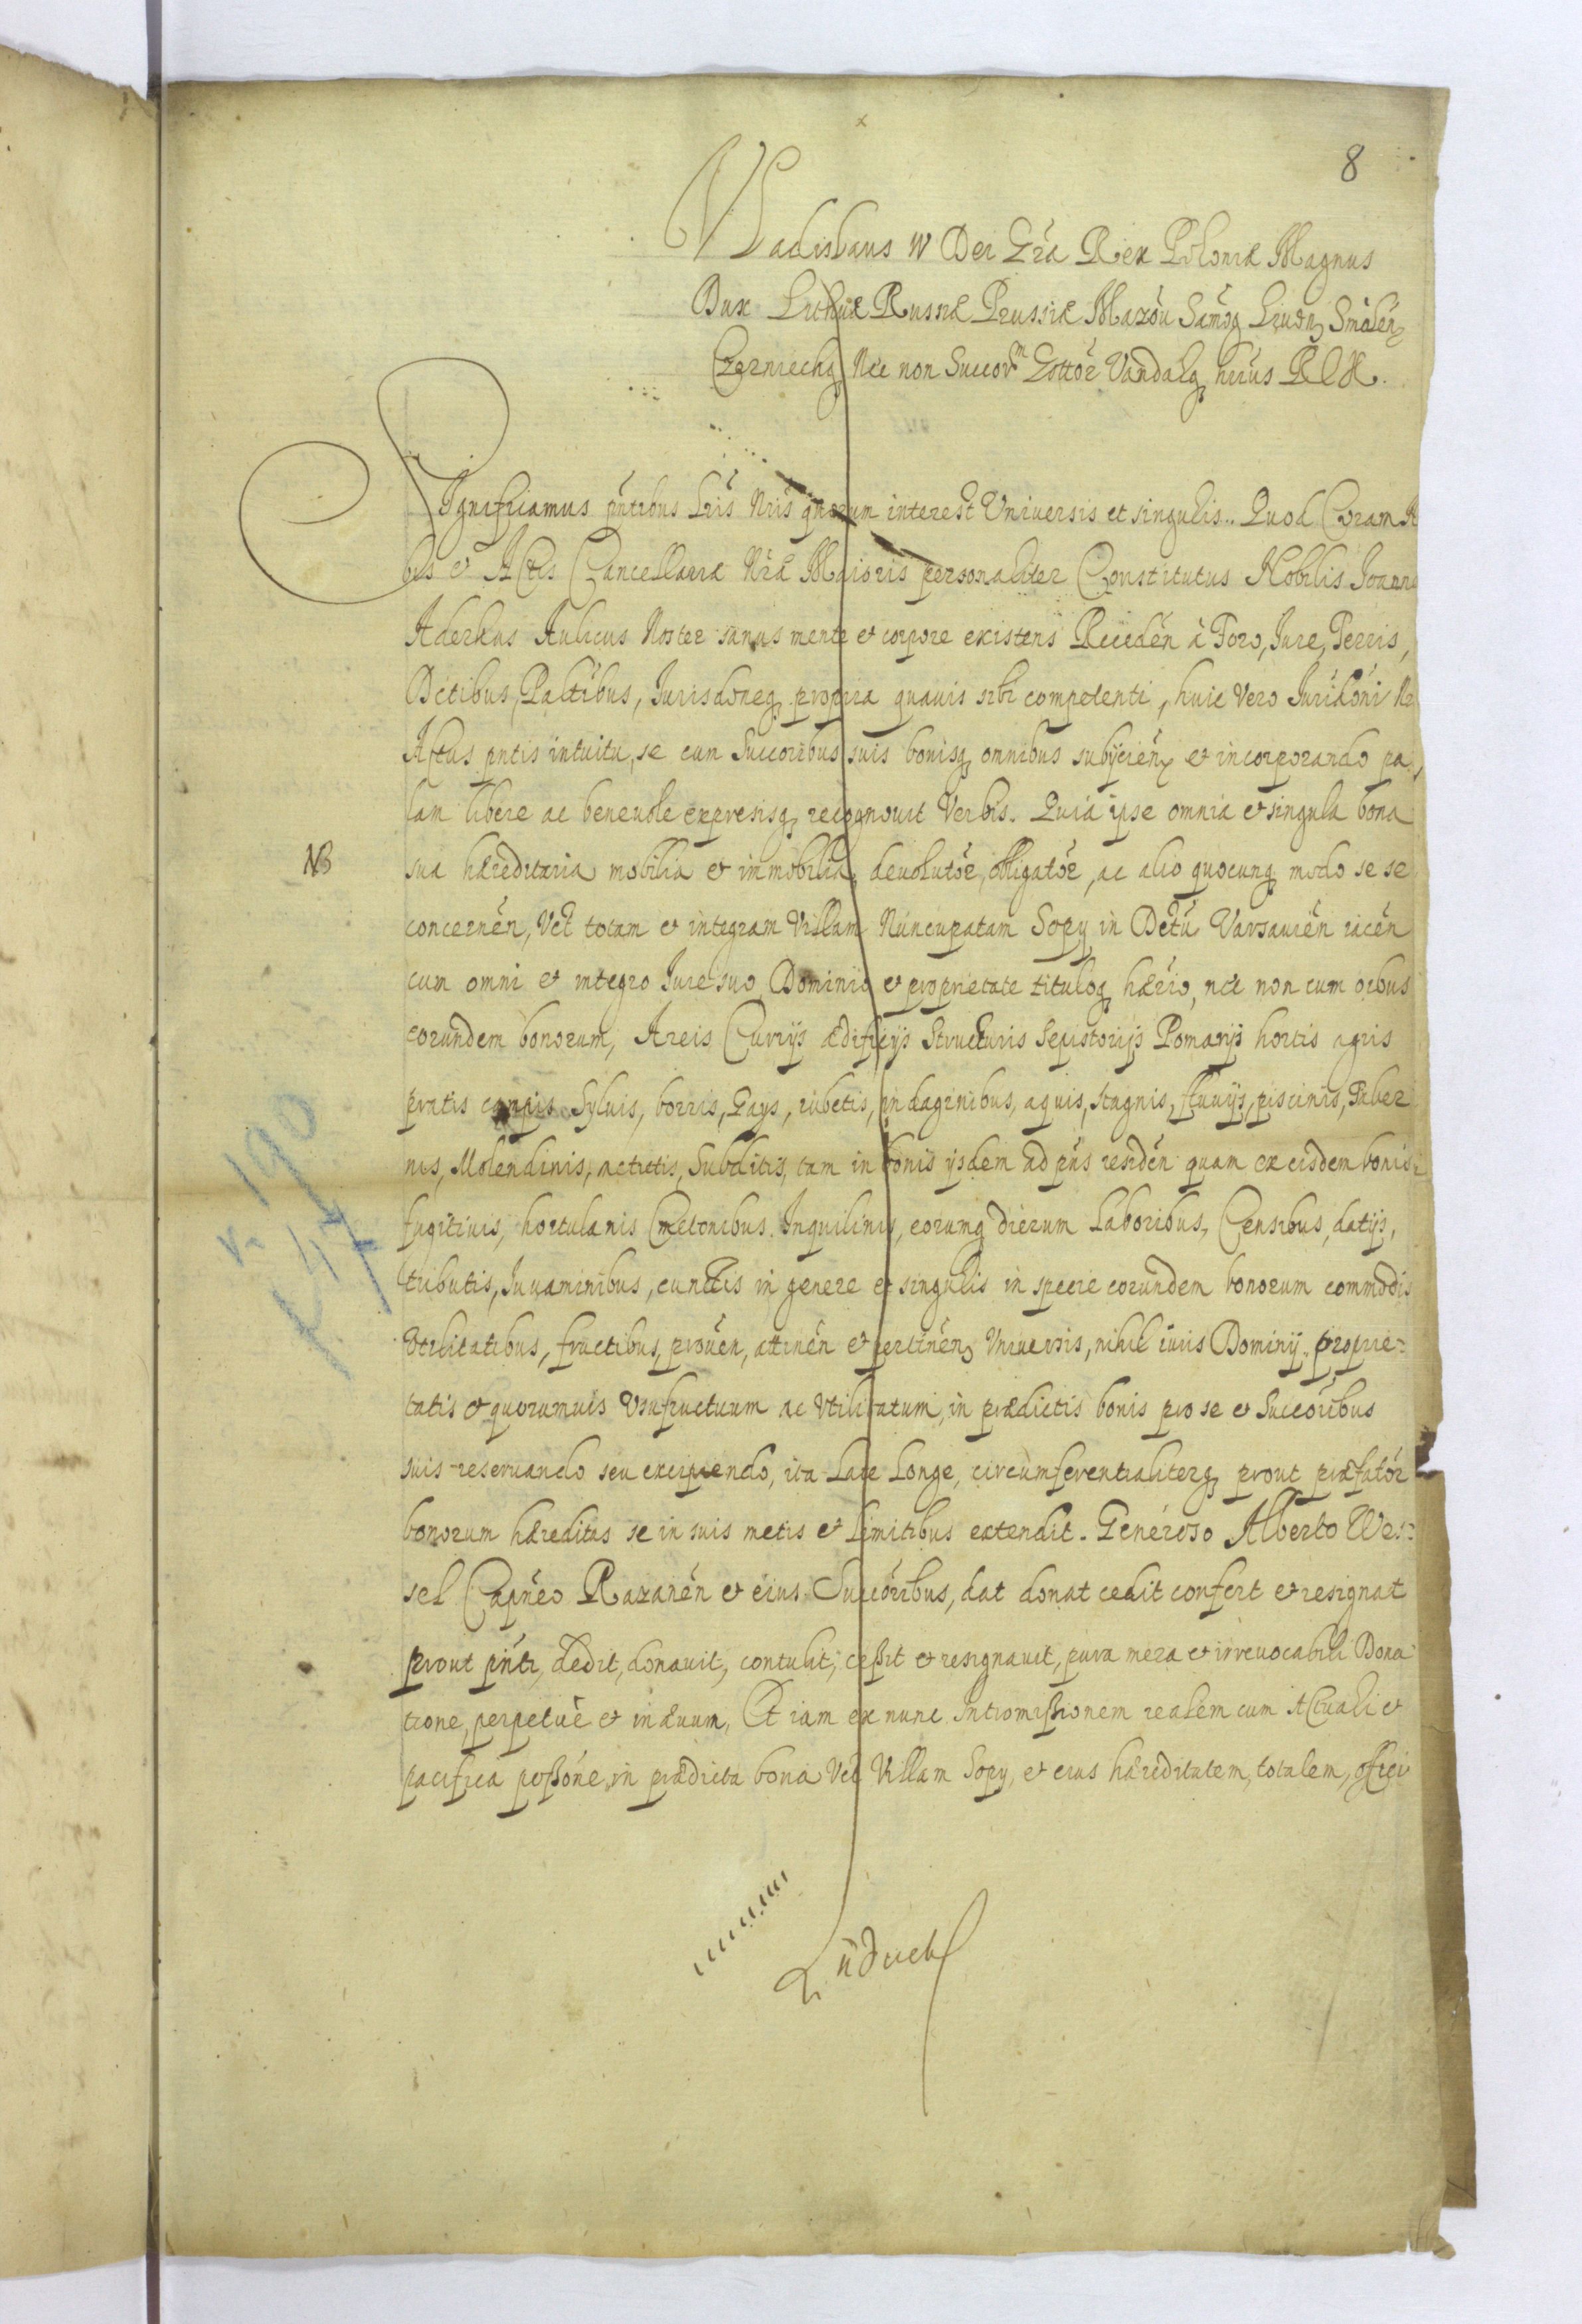 8
Vladislaus IV Dei Gra̅ Rex Poloniæ Magnus
Dux Lithuæ Russiæ Prussiæ Mazou̅ Samog Liuon Smolen
Czerniechq Nec non Succor̅m Gottor̅ Vandalq hrius Rex.
Significamus pn̅tibus Lris̅ Nris̅ quorum interest Universis et singulis. Quod Coram A
bis et Actis Cancellariæ Nræ Maioris personaliter Constitutus Nobilis Joanne
Aderkas Aulicus Noster sanus mente et corpore existens Receden̅ à Foro, Jure, Terris,
Dctibus, Paltibus, Jurisdoneq propria quavis sibi competenti, huic vero Jurisdoni Nr
Actus pn̅tis intuitu, se cum Succoribus suis bonisq omnibus subÿcien̅ et incorporando pa
lam libere ac benevole expresisq recognovit Verbis. Quia ipse omnia et singula bona
NB
sua hæreditaria mobilia et immobilia, devolutor̅, obligator̅, ac alio quocunq modo se se
concernen̅, Vet totam et integram Villam Nuncupatam Sopy in Dctu̅ Varsavien̅ iacen̅
cum omni et integro Jure suo Dominio et proprietate tituloq hær̅io, nec non cum o̅ibus
eorundem bonorum, Areis Curijs ædificijs Structuris Sepistorijs Pomarijs hortis agris
pratis campis Sylvis, borris, Gays, rubetis, indaginibus, aquis, stagnis, fluvijs, piscinis, Taber
nis, Molendinis, actictis, Subditis, tam in bonis ijsdem ad pn̅s residen̅ quam ex eisdem bonis
fugitivis, hortulanis Cmetonibus. Inquilinis, eorumq dierum Laboribus, Censibus, datijs,
tributis, Juvaminibus, cunctis in genere et singulis in specie eorundem bonorum commodis
Utilitatibus, fructibus, proven̅, attinen̅ et pertinen̅ Universis, nihil iuris Dominij proprie=
tatis et quorumvis Usufructuum ac Utilitatum, in prædictis bonis pro se et Succoribus
suis reservando seu excipiendo, ita Late Longe, circumferentialiterq prout præfator̅
bonorum hæreditas se in suis metis et Limitibus extendit. Generoso Alberto Wes=
sel Capn̅eo Razanen̅ et eius Succoribus, dat donat cedit confert et resignat
prout pn̅ti, dedit, donavit, contulit, cessit et resignavit, pura mera et irrevocabili Dona
tione, perpetue et in ævum, Et iam ex nunc Intromissionem realem cum Actuali et
pacifica possone, in prædicta bona Vet Villam Sopy, et eius hæreditatem, totalem, offici
v. 190
f. 47